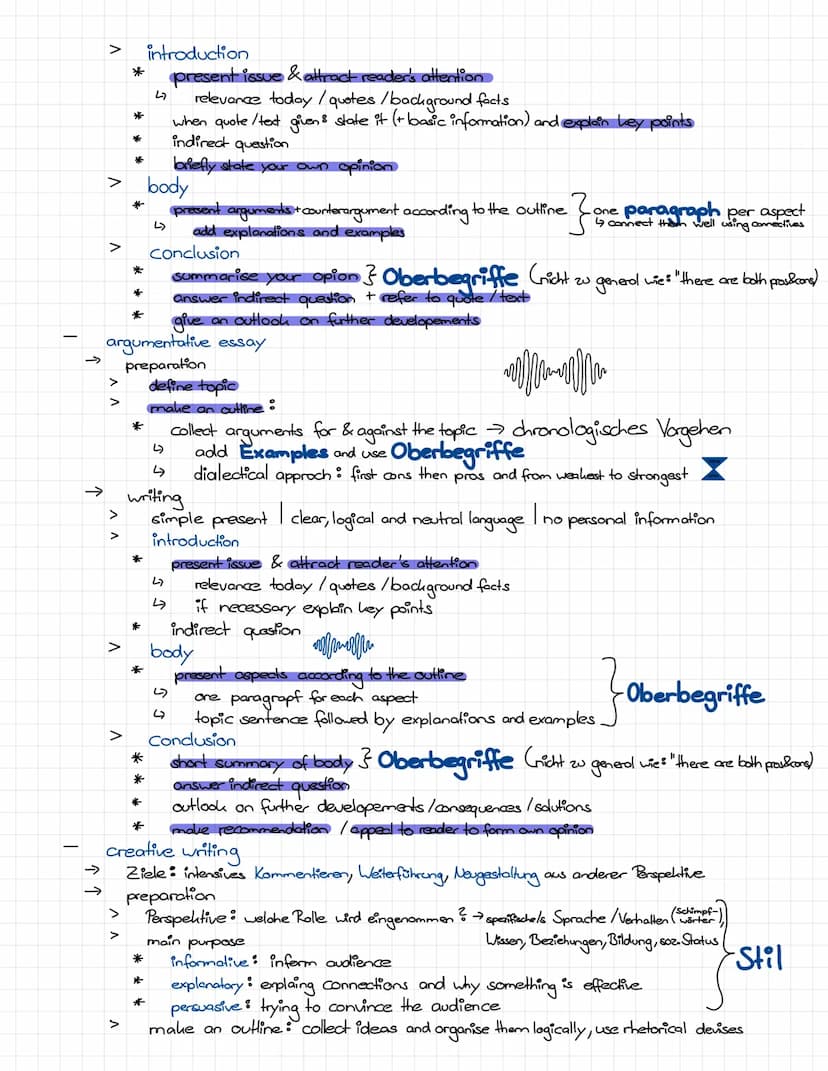 > introduction
* present issue & attract reader's attention
↳ relevance today / quotes / background facts
* when quote / text given: state it (+ basic information) and explain key points
* indirect question
* briefly state your own opinion
> body
* present arguments + counterargument according to the outline } one paragraph per aspect
↳ add explanations and examples ↳ connect them well using connectives
> conclusion
* summarise your opion } Oberbegriffe (nicht zu general wie: "there are both pros&cons)
* answer indirect question + refer to quote / text
* give an outlook on further developements
– argumentative essay
→ preparation
> define topic
> make an outline :
* collect arguments for & against the topic → chronologisches Vorgehen
↳ add Examples and use Oberbegriffe
↳ dialectical approch : first cons then pros and from weakest to strongest
→ writing
> simple present | clear, logical and neutral language | no personal information
> introduction
* present issue & attract reader's attention
↳ relevance today / quotes / background facts
↳ if necessary explain key points
* indirect question
> body
* present aspects according to the outline
↳ one paragrapf for each aspect } Oberbegriffe
↳ topic sentence followed by explanations and examples
> conclusion
* short summary of body } Oberbegriffe (nicht zu general wie: "there are both pros&cons)
* answer indirect question
* outlook on further developements / consequences / solutions
* make recommendation / appeal to reader to form own opinion
– creative writing
→ Ziele : intensives Kommentieren, Weiterführung, Neugestaltung aus anderer Perspektive
→ preparation
> Perspektive : welche Rolle wird eingenommen ? → spezifische/s Sprache / Verhalten (Schimpf-wörter),
> main purpose Wissen, Beziehungen, Bildung, soz. Status
* informative : inform audience } Stil
* explanatory : explaing connections and why something is effective
* persuasive : trying to convince the audience
> make an outline : collect ideas and organise them logically, use rhetorical devises